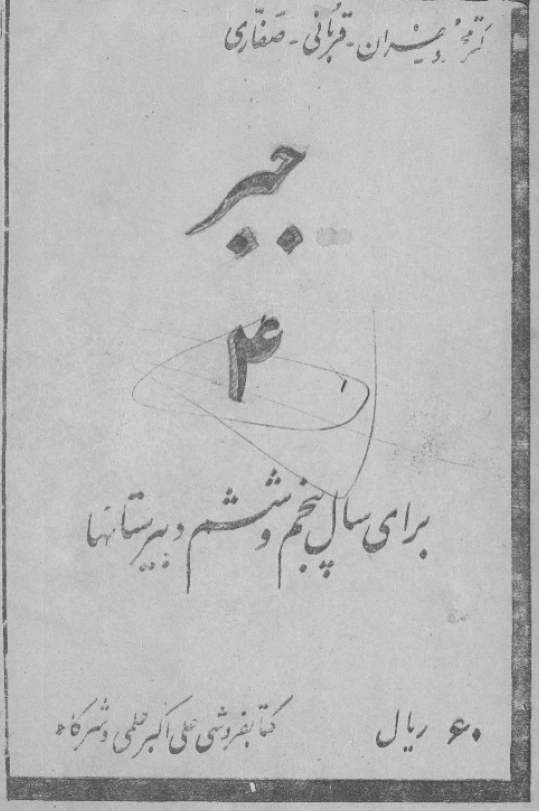 دبیران - قربانی - صفّاری
جبر
۴
برای سال پنجم و ششم دبیرستانها
۶۰ ریال
کتابفروشی علی اکبر علمی و شرکاء